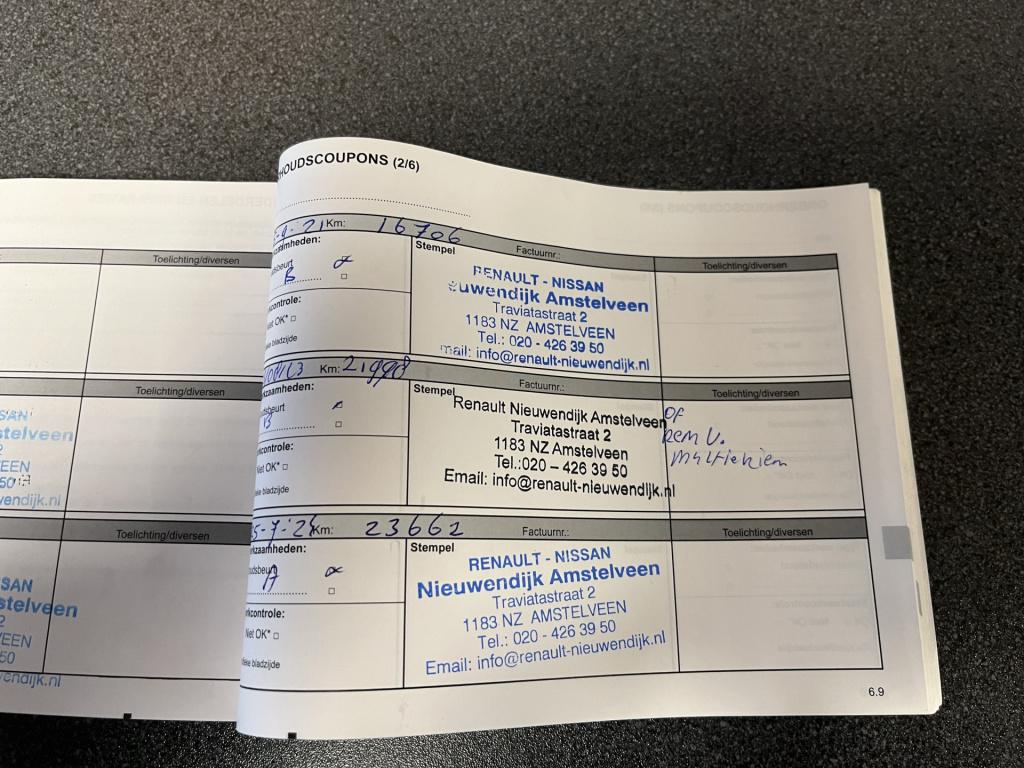 HOUDSCOUPONS (2/6)
Km: 16706
zaamheden:
dsbeurt
B
controle:
Net OK*
ke bladzijde
Stempel
Factuurnr.:
Toelichting/diversen
RENAULT - NISSAN
euwendijk Amstelveen
Traviatastraat 2
1183 NZ AMSTELVEEN
Tel.: 020 - 426 39 50
mail: info@renault-nieuwendijk.nl
Km:
kzaamheden:
dsbeurt
B
controle:
Net OK*
eke bladzijde
Stempel
Factuurnr.:
Toelichting/diversen
Renault Nieuwendijk Amstelveen
Traviatastraat 2
1183 NZ Amstelveen
Tel.:020 – 426 39 50
Email: info@renault-nieuwendijk.nl
Km: 23662
kzaamheden:
udsbeurt
A
kcontrole:
Niet OK*
fieke bladzijde
Stempel
Factuurnr.:
Toelichting/diversen
RENAULT - NISSAN
Nieuwendijk Amstelveen
Traviatastraat 2
1183 NZ AMSTELVEEN
Tel.: 020 - 426 39 50
Email: info@renault-nieuwendijk.nl
6.9
Toelichting/diversen
Toelichting/diversen
SSAN
stelveen
2
EEN
50
wendijk.nl
Toelichting/diversen
SAN
stelveen
2
EEN
50
endijk.nl